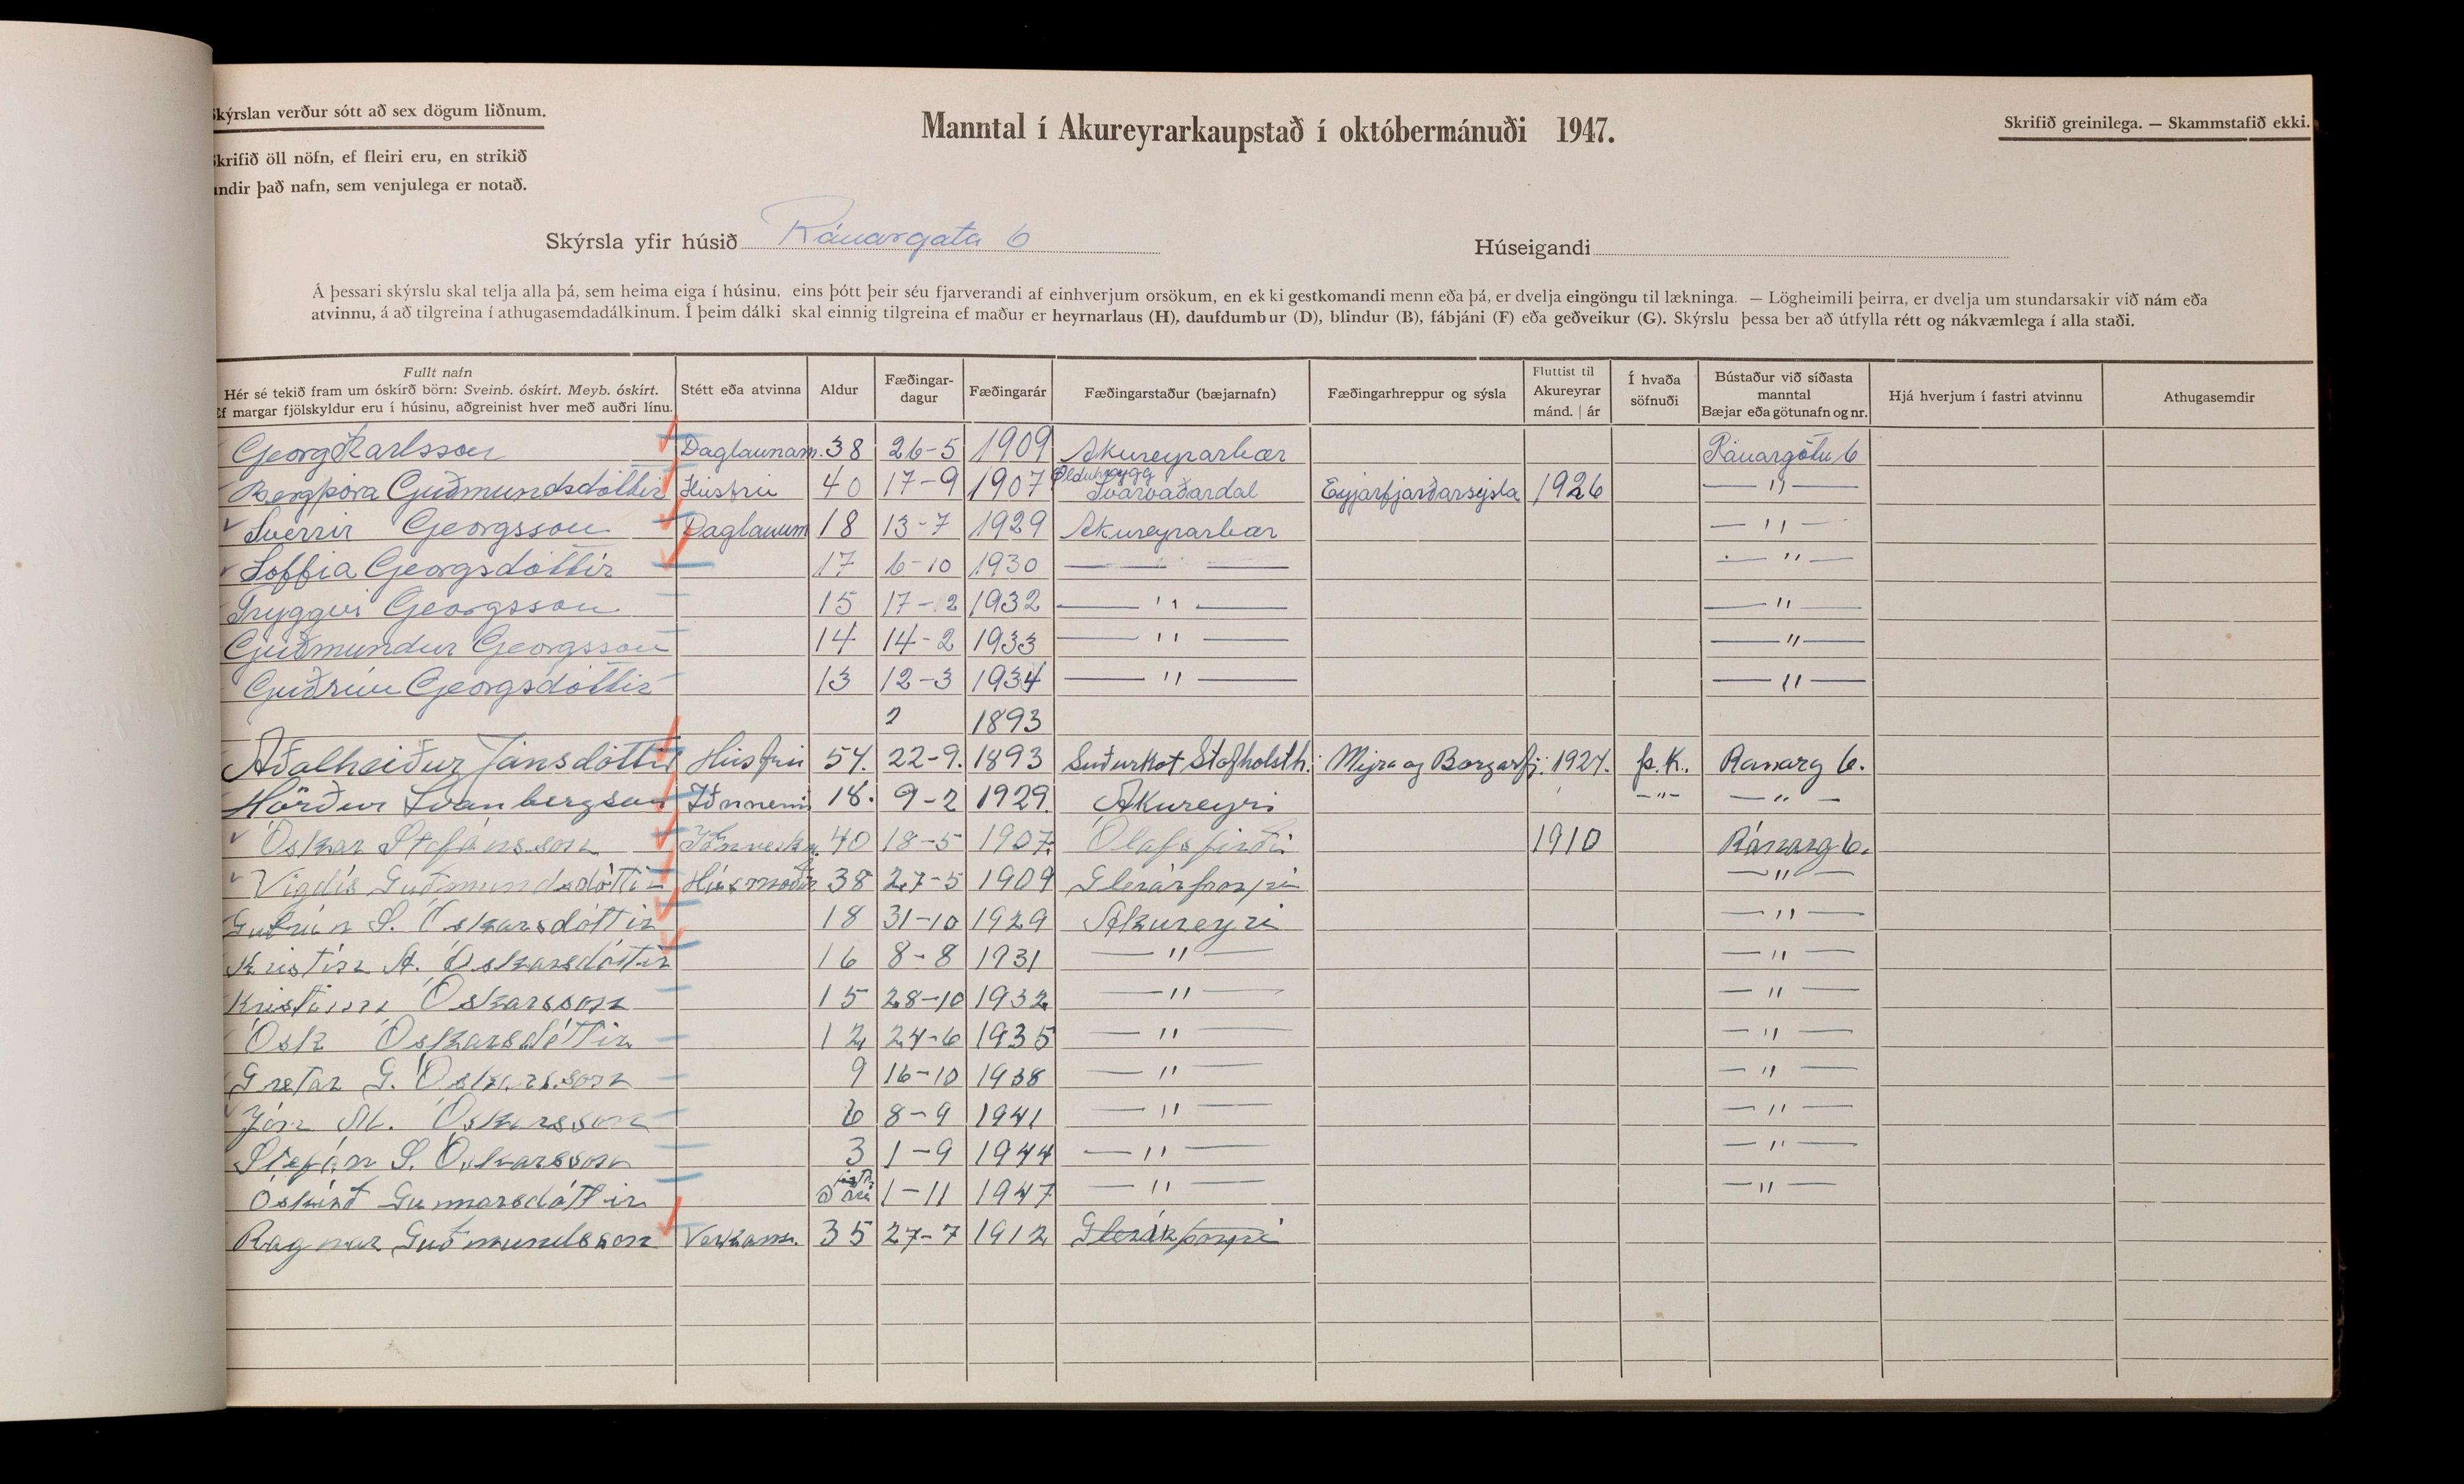 Skýrslan verður sótt að sex dögum liðnum.
Manntal í Akureyrarkaupstað í októbermánuði 1947.
Skrifið greinilega. — Skammstafið ekki.
Skrifið öll nöfn, ef fleiri eru, en strikið
undir það nafn, sem venjulega er notað.
Skýrsla yfir húsið Ránargata 6 Húseigandi
Á þessari skýrslu skal telja alla þá, sem heima eiga í húsinu, eins þótt þeir séu fjarverandi af einhverjum orsökum, en ekki gestkomandi menn eða þá, er dvelja eingöngu til lækninga. — Lögheimili þeirra, er dvelja um stundarsakir við nám eða
atvinnu, á að tilgreina í athugasemdadálkinum. Í þeim dálki skal einnig tilgreina ef maður er heyrnarlaus (H), daufdumbur (D), blindur (B), fábjáni (F) eða geðveikur (G). Skýrslu þessa ber að útfylla rétt og nákvæmlega í alla staði.
Fullt nafn
Hér sé tekið fram um óskírð börn: Sveinb. óskírt. Meyb. óskírt.
Ef margar fjölskyldur eru í húsinu, aðgreinist hver með auðri línu.
Stétt eða atvinna
Aldur
Fæðingar-
dagur
Fæðingarár
Fæðingarstaður (bæjarnafn)
Fæðingarhreppur og sýsla
Fluttist til
Akureyrar
mánd. | ár
Í hvaða
söfnuði
Bústaður við síðasta
manntal
Bæjar eða götunafn og nr.
Hjá hverjum í fastri atvinnu
Athugasemdir
Georg Karlsson Daglaunam. 38 26-5 1909 Akureyrarbær Ránargötu 6
Bergþóra Guðmundsdóttir Húsfrú 40 17-9 1907 Ölduhrygg Svarvaðardal Eyjarfjarðarsýsla 1926 — " —
Sverrir Georgsson Daglaunam 18 13-7 1929 Akureyrarbær — " —
Soffia Georgsdóttir 17 6-10 1930 — — — " —
Tryggvi Georgsson 15 17-2 1932 — " — — " —
Guðmundur Georgsson 14 14-2 1933 — " — — " —
Guðrún Georgsdóttir 13 12-3 1934 — " — — " —
2 1893
Aðalheiður Jónsdóttir Húsfrú 54. 22-9. 1893 Suðurkot Stafholsth. Mýra og Borgarfj. 1927. þ.K. Ranarg 6.
Hörður Svanbergsson Iðnnemi 18. 9-2 1929. Akureyri — " — — " —
Óskar Stefánsson 40 18-5 1907. Ólafsfirði 1910 Ránarg 6.
Vigdís Guðmundsdóttir Húsmóðir 38 27-5 1909 Glerárþorpi — " —
Guðrún S. Óskarsdóttir 18 31-10 1929 Akureyri — " —
Kristín A. Óskarsdóttir 16 8-8 1931 — " — — " —
Kristinn Óskarsson 15 28-10 1932 — " — — " —
Ósk Óskarsdóttir 12 24-6 1935 — " — — " —
Gretar G. Óskarsson 9 16-10 1938 — " — — " —
Jón M. Óskarsson 6 8-9 1941 — " — — " —
Stefán S. Óskarsson 3 1-9 1944 — " — — " —
Óskírð Gunnarsdóttir 1-11 1947 — " — — " —
Ragnar Guðmundsson Verkam. 35 27-7 1912 Glerárþorpi